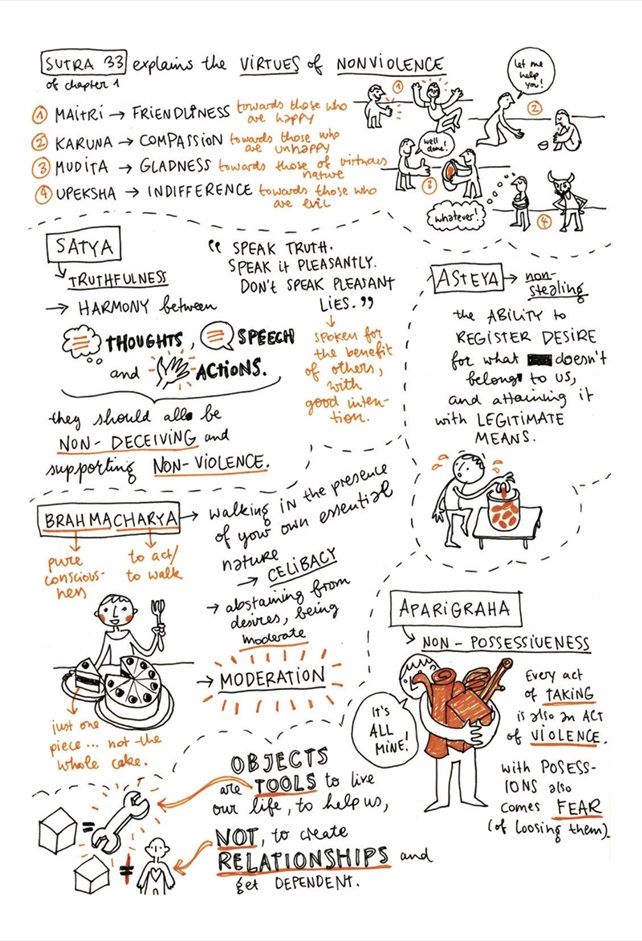 SUTRA 33 explains the VIRTUES of NONVIOLENCE
of chapter 1
① MAITRI → FRIENDLINESS towards those who
are happy
② KARUNA → COMPASSION towards those who
are unhappy
③ MUDITA → GLADNESS towards those of virtuous
nature
④ UPEKSHA → INDIFFERENCE towards those who
are evil
①
let me
help
you!
②
well
done!
③
whatever!
④
SATYA
TRUTHFULNESS
→ HARMONY between
THOUGHTS, SPEECH
and ACTIONS.
they should all be
NON-DECEIVING and
supporting NON-VIOLENCE.
“ SPEAK TRUTH.
SPEAK IT PLEASANTLY.
DON'T SPEAK PLEASANT
LIES. ”
spoken for
the benefit
of others,
with
good inten-
tion.
ASTEYA → non-
stealing
the ABILITY to
REGISTER DESIRE
for what doesn't
belong to US,
and attaining it
with LEGITIMATE
MEANS.
BRAHMACHARYA → walking in the presence
of your own essential
nature
→ CELIBACY
→ abstaining from
desires, being
moderate
→ MODERATION
pure
conscious-
ness
to act/
to walk
just one
piece... not the
whole cake.
APARIGRAHA
NON-POSSESSIVENESS
IT'S
ALL
MINE!
Every act
of TAKING
is also an ACT
of VIOLENCE.
with POSESS-
IONS also
comes FEAR
(of loosing them)
OBJECTS
are TOOLS to live
our life, to help us,
NOT, to create
RELATIONSHIPS and
get DEPENDENT.
=
≠